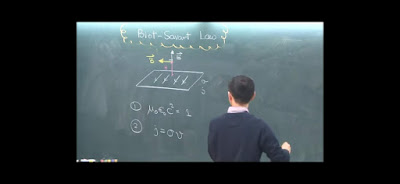 Biot-Savart Law
B
σ
j
① μ₀ε₀c² = 1
② j = σv